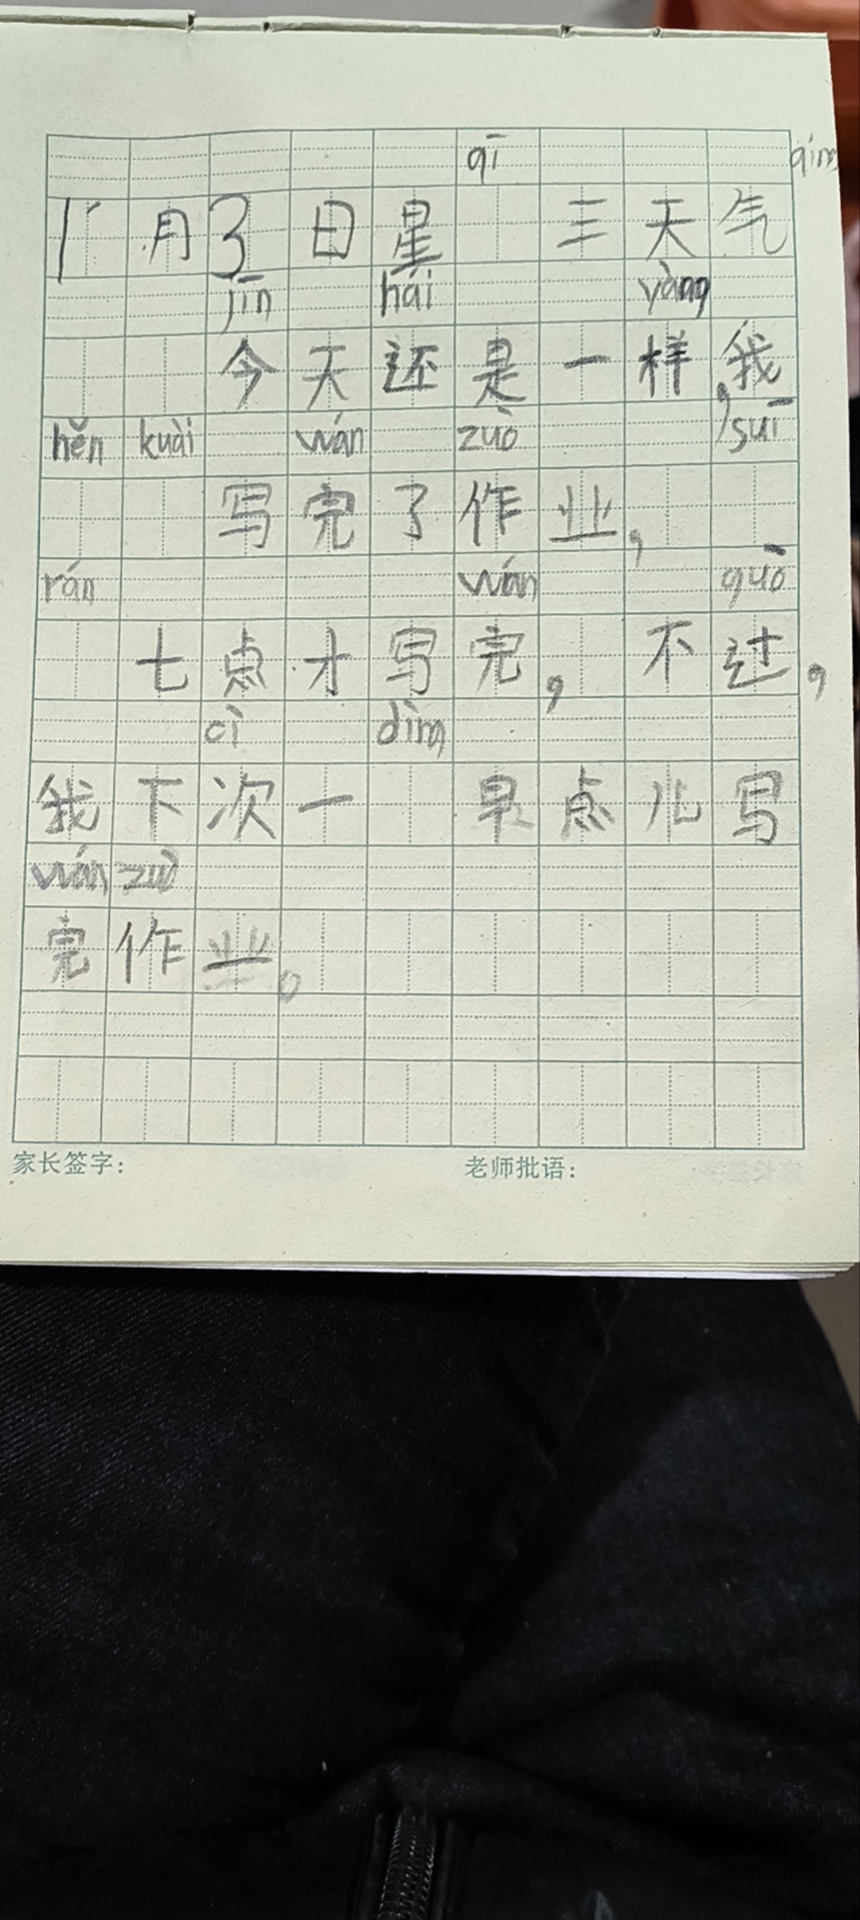 qī qíng
1月3日星 三天气
jīn hái yàng
今天还是一样,我
hěn kuài wán zuò suī
写完了作业,
rán wán guò
七点才写完,不过,
cì dìng
我下次一 早点儿写
wán zuò
完作业。
家长签字: 老师批语: